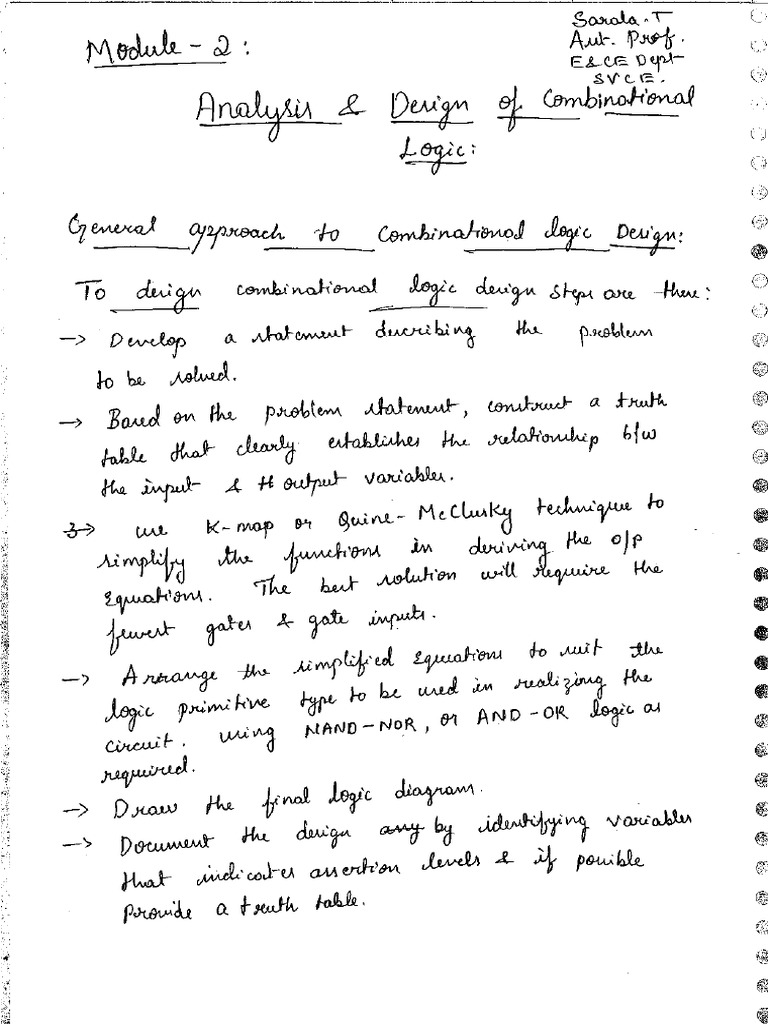 Sarala.T
Module - 2:
Asst. Prof.
E&CE Dept
SVCE.
Analysis & Design of Combinational
Logic:
General approach to Combinational logic Design:
To design combinational logic design steps are there:
-> Develop a statement describing the problem
to be solved.
-> Based on the problem statement, construct a truth
table that clearly establishes the relationship b/w
the input & output variables.
-> use K-map or Quine-McClusky technique to
simplify the functions in deriving the o/p
Equations. The best solution will require the
fewest gates & gate inputs.
-> Arrange the simplified Equations to suit the
logic primitive type to be used in realizing the
circuit. using NAND-NOR, or AND-OR logic as
required.
-> Draw the final logic diagram.
-> Document the design any by identifying variables
that indicates assertion levels & if possible
Provide a truth table.